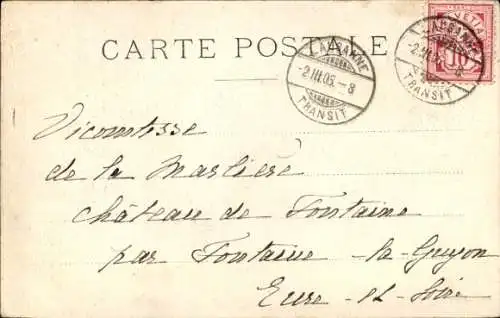 CARTE POSTALE
LAUSANNE
-2.III.05.-8
TRANSIT
HELVETIA
10
LAUSANNE
-2.III.05.-8
TRANSIT
Vicomtesse
de la Marlière
château de Fontaine
par Fontaine-la-Guyon
Eure-et-Loire